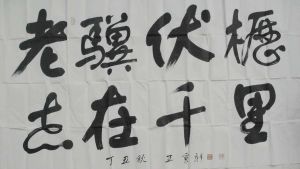 老驥伏櫪
志在千里
丁丑秋 王